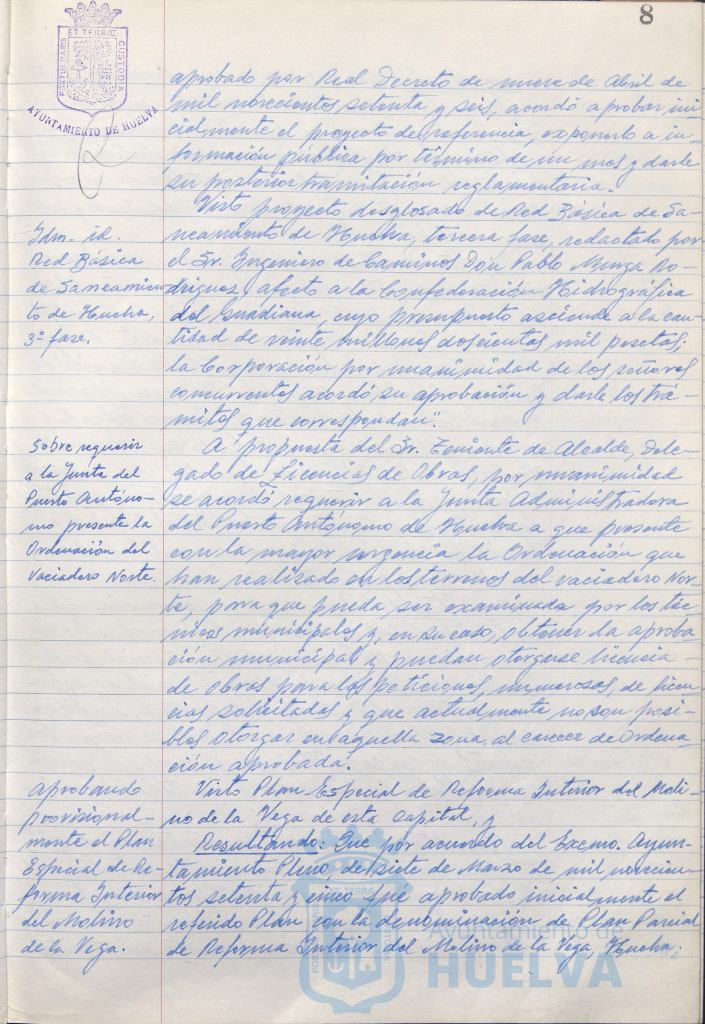 8
PORTUS MARIS
ET TERRÆ
CUSTODIA
AYUNTAMIENTO DE HUELVA
aprobado por Real Decreto de nueve de Abril de
mil novecientos setenta y seis, acordó aprobar ini-
cialmente el proyecto de referencia, exponerlo a in-
formación pública por término de un mes y darle
su posterior tramitación reglamentaria.
Idm. id.
Red Básica
de Saneamien-
to de Huelva,
3ª fase.
Visto proyecto desglosado de Red Básica de Sa-
neamiento de Huelva, tercera fase, redactado por
el Sr. Ingeniero de Caminos Don Pablo Ro-
driguez, afecto a la Confederación Hidrográfica
del Guadiana, cuyo presupuesto asciende a la can-
tidad de veinte millones doscientas mil pesetas;
la Corporación por unanimidad de los señores
concurrentes acordó su aprobación y darle los trá-
mites que correspondan".
Sobre requerir
a la Junta del
Puerto Autóno-
mo presente la
Ordenación del
Vaciadero Norte.
A propuesta del Sr. Teniente de Alcalde, Dele-
gado de Licencias de Obras, por unanimidad
se acordó requerir a la Junta Administradora
del Puerto Autónomo de Huelva a que presente
con la mayor urgencia la Ordenación que
han realizado en los terrenos del vaciadero Nor-
te, para que pueda ser examinada por los téc-
nicos municipales y, en su caso, obtener la aproba-
ción municipal y puedan otorgarse licencia
de obras para las peticiones, numerosas, de licen-
cias solicitadas y que actualmente no son posi-
bles otorgar en aquella zona, al carecer de Ordena-
ción aprobada.
aprobando
provisional-
mente el Plan
Especial de Re-
forma Interior
del Molino
de la Vega.
Visto Plan Especial de Reforma Interior del Moli-
no de la Vega de esta capital, y
Resultando: Que por acuerdo del Excmo. Ayun-
tamiento Pleno, de siete de Marzo de mil novecien-
tos setenta y cinco fue aprobado inicialmente el
referido Plan con la denominación de Plan Parcial
de Reforma Interior del Molino de la Vega, Huelva.
Ayuntamiento de
HUELVA